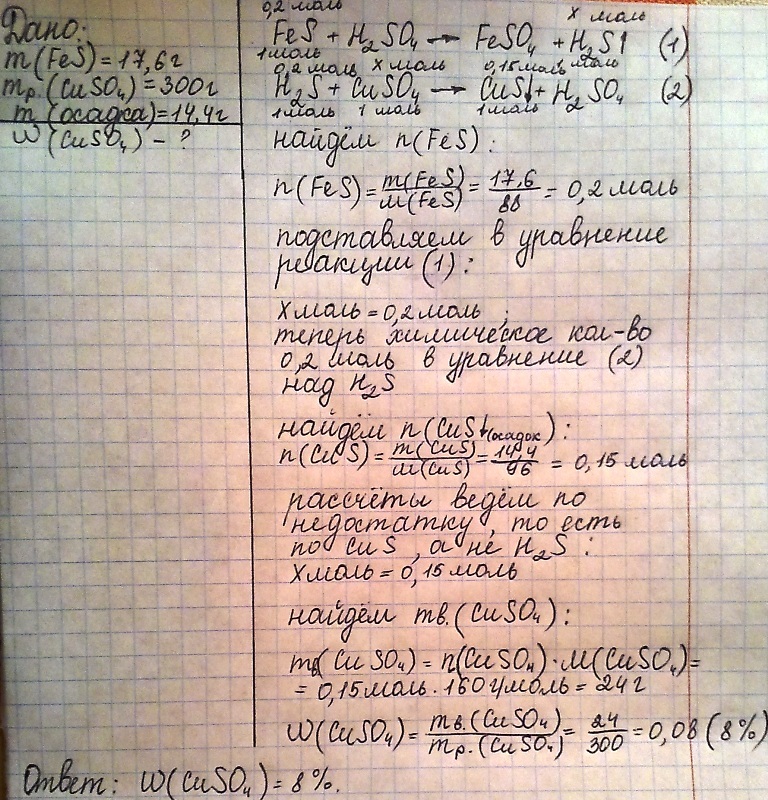 Дано:
m(FeS)=17,6г
mр.(CuSO₄)=300г
m(осадка)=14,4г
W(CuSO₄) - ?
0,2 моль x моль
FeS + H₂SO₄ → FeSO₄ + H₂S↑ (1)
1 моль 1 моль
0,2 моль x моль 0,15 моль
H₂S + CuSO₄ → CuS↓ + H₂SO₄ (2)
1 моль 1 моль 1 моль
найдём n(FeS):
n(FeS) = m(FeS)/M(FeS) = 17,6/88 = 0,2 моль
подставляем в уравнение
реакции (1):
X моль = 0,2 моль ;
теперь химическое кол-во
0,2 моль в уравнение (2)
над H₂S
найдём n(CuS↓(осадок):
n(CuS) = m(CuS)/M(CuS) = 14,4/96 = 0,15 моль
рассчёты ведём по
недостатку, то есть
по CuS, а не H₂S:
X моль = 0,15 моль
найдём mв.(CuSO₄):
mв(CuSO₄) = n(CuSO₄)·M(CuSO₄)=
= 0,15 моль · 160 г/моль = 24 г
W(CuSO₄) = mв.(CuSO₄)/mр.(CuSO₄) = 24/300 = 0,08 (8%)
Ответ: W(CuSO₄) = 8%.